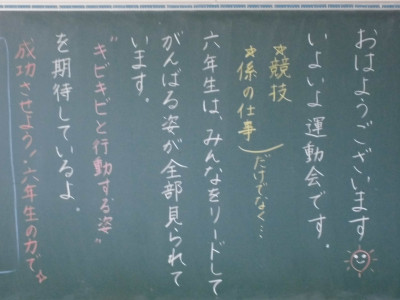 おはようございます
いよいよ運動会です。
☆競技
☆係の仕事
だけでなく…
六年生は、みんなをリードして
がんばる姿が全部見られて
います。
“キビキビと行動する姿”
を期待しているよ。
成功させよう！六年生の力で